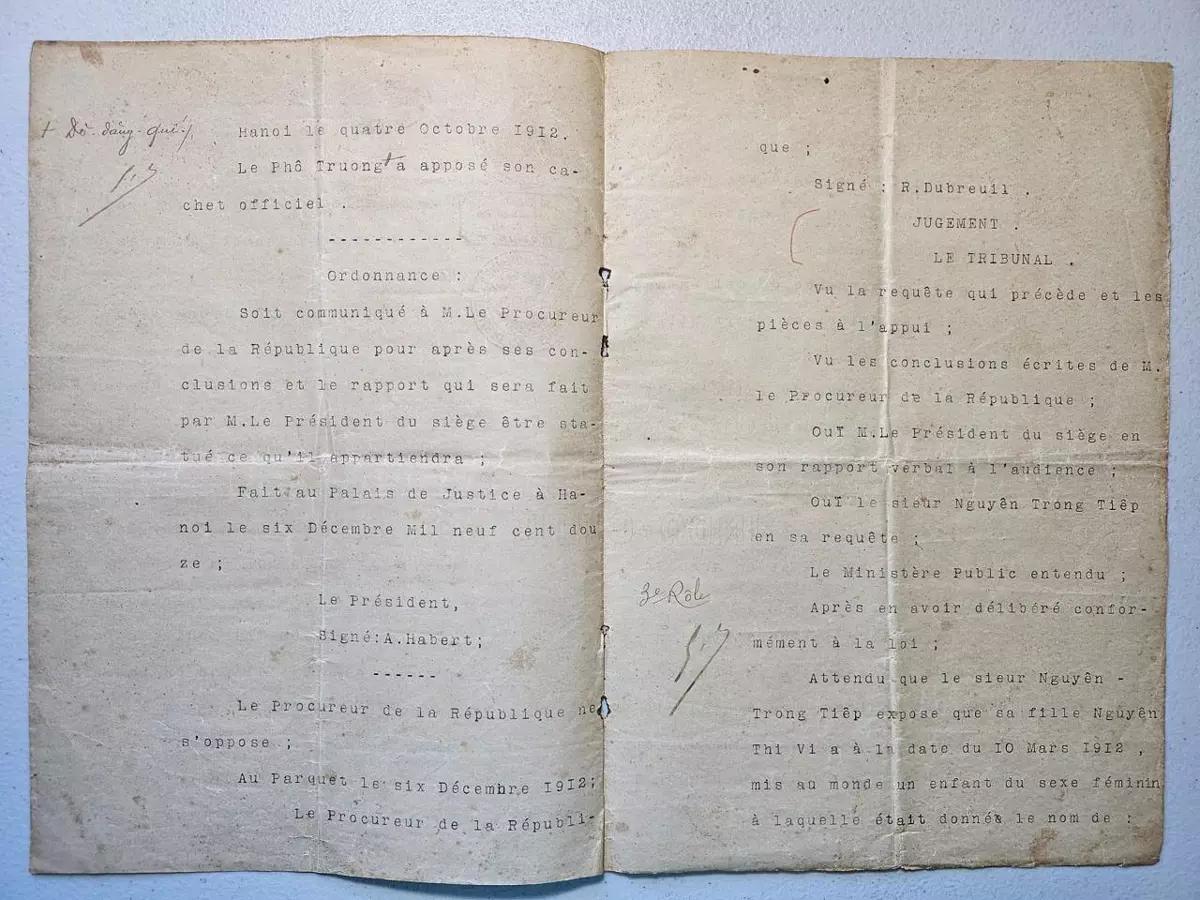 + Dô-dâng-qui·/.
Hanoi le quatre Octobre I9I2.
Le Phô Truong + a apposé son ca-
chet officiel .
------------
Ordonnance :
Soit communiqué à M.Le Procureur
de la République pour après ses con-
clusions et le rapport qui sera fait
par M.Le Président du siège être sta-
tué ce qu'il appartiendra ;
Fait au Palais de Justice à Ha-
noi le six Décembre Mil neuf cent dou
ze ;
Le Président,
Signé:A.Habert;
------
Le Procureur de la République ne
s'oppose ;
Au Parquet le six Décembre I9I2;
Le Procureur de la Républi-
que ;
Signé : R.Dubreuil .
JUGEMENT .
LE TRIBUNAL .
Vu la requête qui précède et les
pièces à l'appui ;
Vu les conclusions écrites de M.
le Procureur de la République ;
OuÏ M.Le Président du siège en
son rapport verbal à l'audience ;
OuÏ le sieur Nguyên Trong Tiêp
en sa requête ;
Le Ministère Public entendu ;
3e Rôle
Après en avoir délibéré confor-
mément à la loi ;
Attendu que le sieur Nguyên -
Trong Tiêp expose que sa fille Nguyên
Thi Vi a à la date du IO Mars I9I2 ,
mis au monde un enfant du sexe féminin
à laquelle était donnée le nom de :